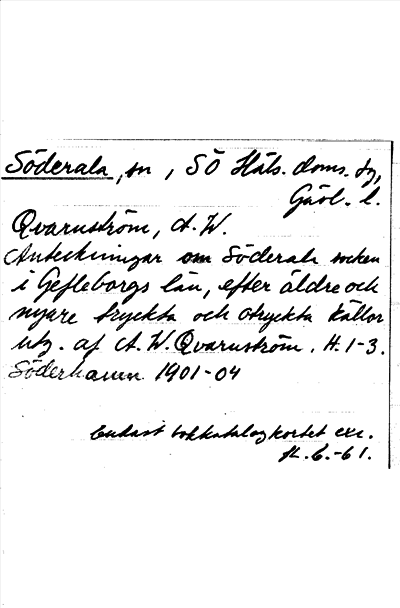 Söderala, sn, SÖ Häls. doms. sg,
Gävl. l.
Qvarnström, A. W.
Anteckningar om Söderala socken
i Gefleborgs län, efter äldre och
nyare tryckta och otryckta källor
utg. af A. W. Qvarnström. H. 1-3.
Söderhamn 1901-04
Endast bokkatalogkortet exc.
-61.